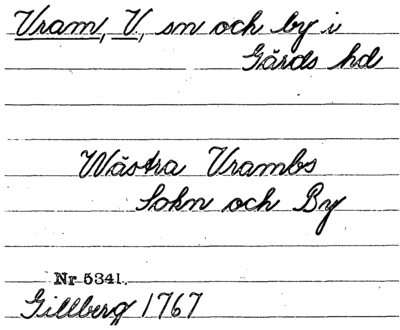 Vram, V., sn och by i
Gärds hd
Wästra Vrambs
Sokn och By
Nr 5341.
Gillberg 1767